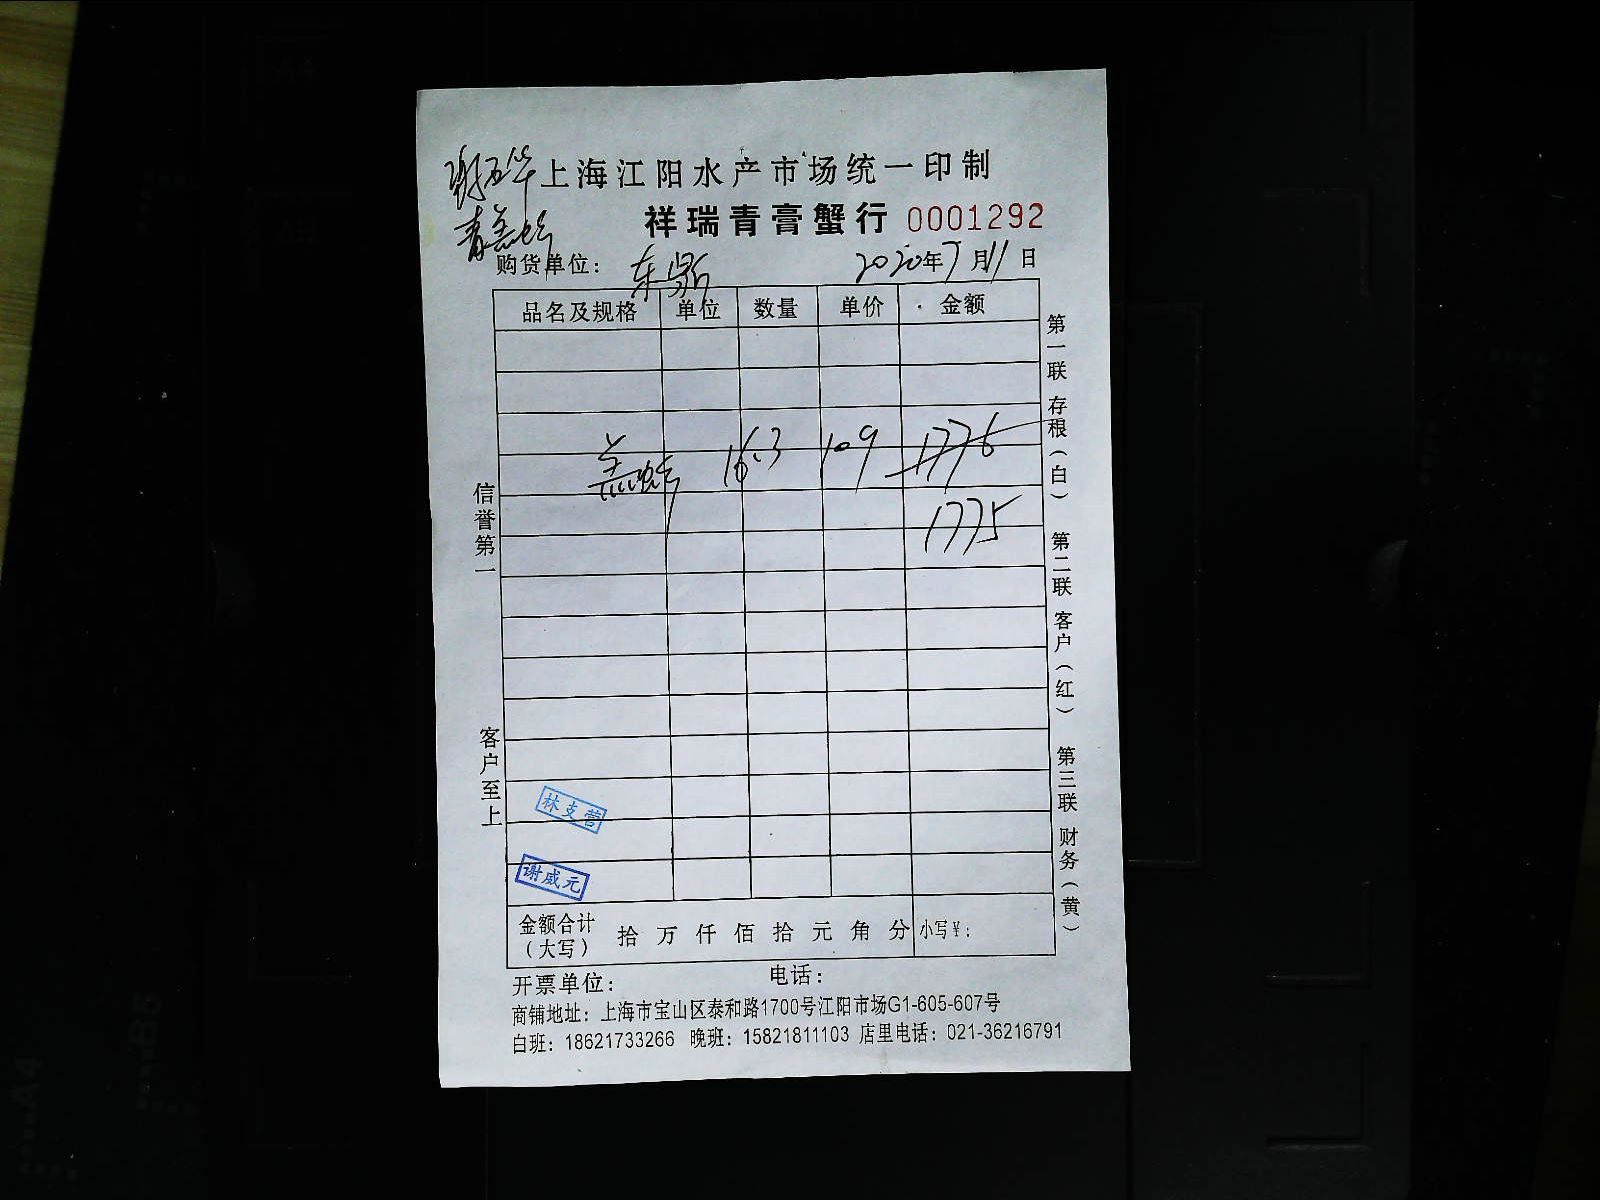 上海江阳水产市场统一印制
祥瑞青膏蟹行 0001292
购货单位： 东鼎 2020年7月11日
品名及规格 单位 数量 单价 金额
16.3 109 1776
1775
信誉第一
客户至上
第一联 存根（白） 第二联 客户（红） 第三联 财务（黄）
林支营
谢威元
金额合计（大写） 拾 万 仟 佰 拾 元 角 分 小写￥：
开票单位： 电话：
商铺地址：上海市宝山区泰和路1700号江阳市场G1-605-607号
白班：18621733266 晚班：15821811103 店里电话：021-36216791